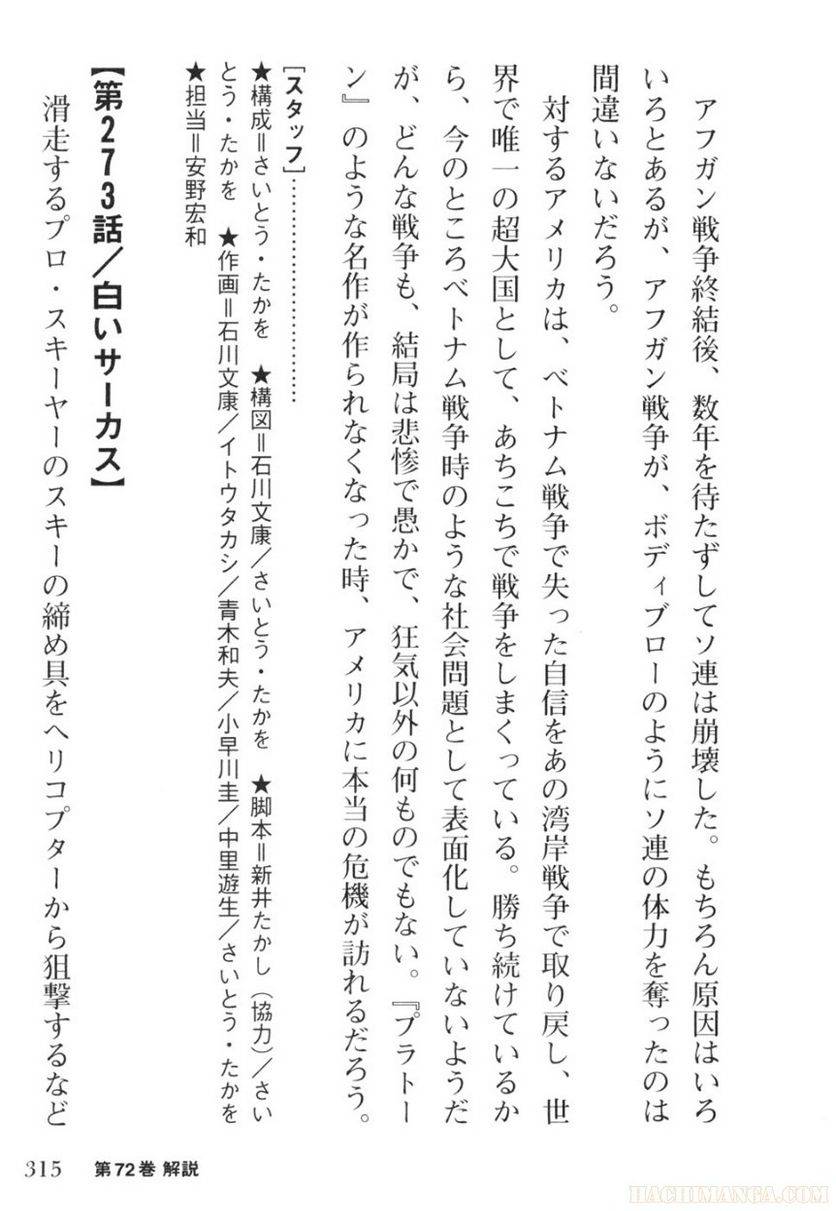 アフガン戦争終結後、数年を待たずしてソ連は崩壊した。もちろん原因はいろ
いろとあるが、アフガン戦争が、ボディブローのようにソ連の体力を奪ったのは
間違いないだろう。
対するアメリカは、ベトナム戦争で失った自信をあの湾岸戦争で取り戻し、世
界で唯一の超大国として、あちこちで戦争をしまくっている。勝ち続けているか
ら、今のところベトナム戦争時のような社会問題として表面化していないようだ
が、どんな戦争も、結局は悲惨で愚かで、狂気以外の何ものでもない。『プラトー
ン』のような名作が作られなくなった時、アメリカに本当の危機が訪れるだろう。
［スタッフ］………………………………
★構成＝さいとう・たかを　★構図＝石川文康／さいとう・たかを　★脚本＝新井たかし（協力）／さい
とう・たかを　★作画＝石川文康／イトウタカシ／青木和夫／小早川圭／中里遊生／さいとう・たかを
★担当＝安野宏和
【第273話／白いサーカス】
滑走するプロ・スキーヤーのスキーの締め具をヘリコプターから狙撃するなど
315　第72巻 解説
HACHIMANGA.COM